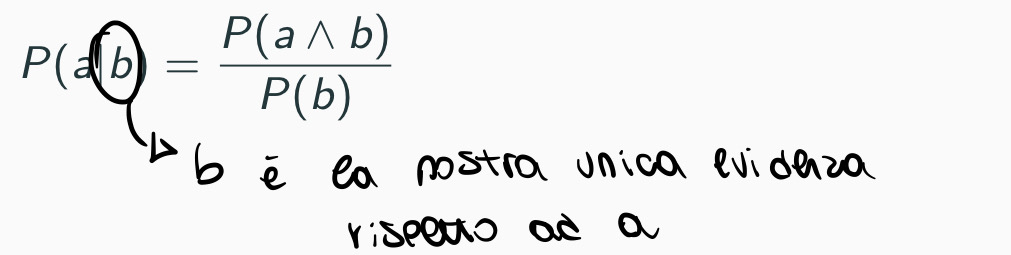 P(a|b) = P(a ∧ b) / P(b)
b è la nostra unica evidenza
rispetto ad a